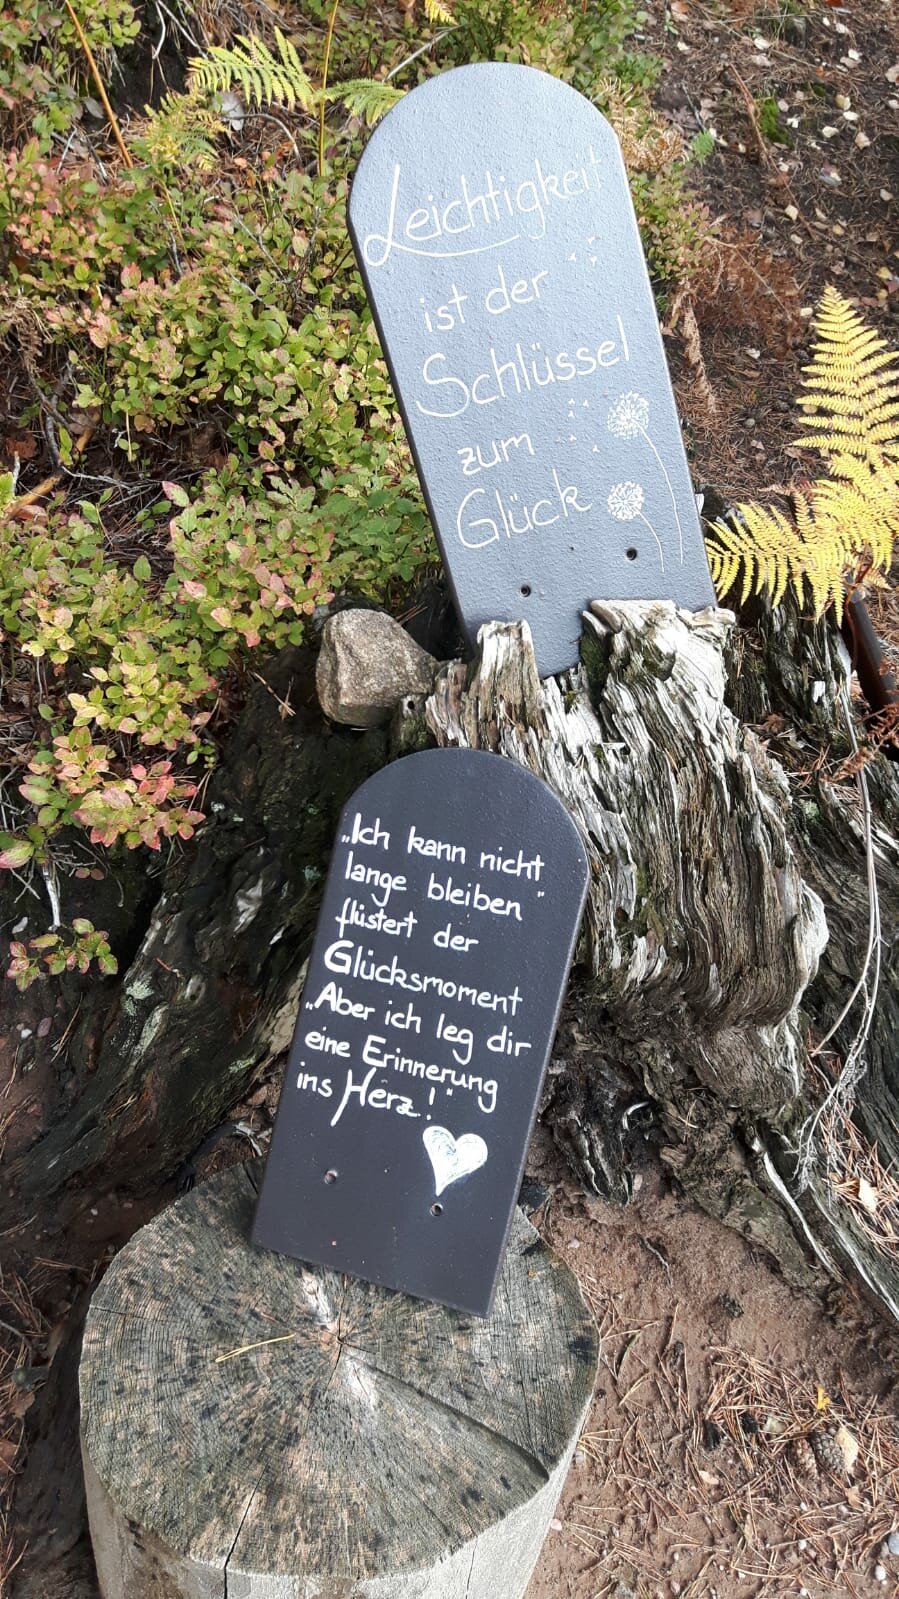 Leichtigkeit
ist der
Schlüssel
zum
Glück
„Ich kann nicht
lange bleiben"
flüstert der
Glücksmoment
„Aber ich leg dir
eine Erinnerung
ins Herz!"